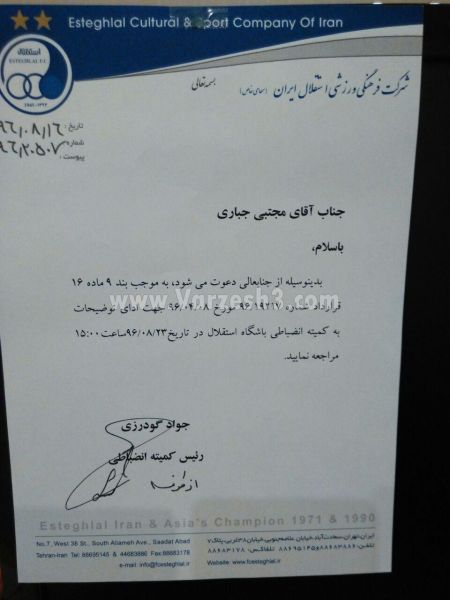 Esteghlal Cultural & Sport Company Of Iran
استقلال
ESTEGHLAL F.C
بسمه تعالی
شرکت فرهنگی ورزشی استقلال ایران (سهامی خاص)
تاریخ: ۹۶/۰۸/۱۶
شماره: ۹۶/۲۰۵۰۷
پیوست:
جناب آقای مجتبی جباری
باسلام،
بدینوسیله از جنابعالی دعوت می شود، به موجب بند ۹ ماده ۱۶
قرارداد شماره مورخ ۹۶/۰۴/۰۸ جهت ادای توضیحات
www.Varzesh3.com
به کمیته انضباطی باشگاه استقلال در تاریخ ۹۶/۰۸/۲۳ساعت ۱۵:۰۰
مراجعه نمایید.
جواد گودرزی
رئیس کمیته انضباطی
از طرف
Esteghlal Iran & Asia's Champion 1971 & 1990
No.7, West 38 St., South Allameh Ave., Saadat Abad
Tehran-Iran Tel: 88695145 & 44683886 Fax:88683178
e-mail: info@esteghlal.ir
Website: www.fcesteghlal.ir
ایران،تهران،سعادت آباد،خیابان علامه جنوبی،خیابان ۳۸غربی،پلاک۷
تلفن: ۸۸۶۹۵۱۴۵ تلفاکس: ۸۸۶۸۳۱۷۸